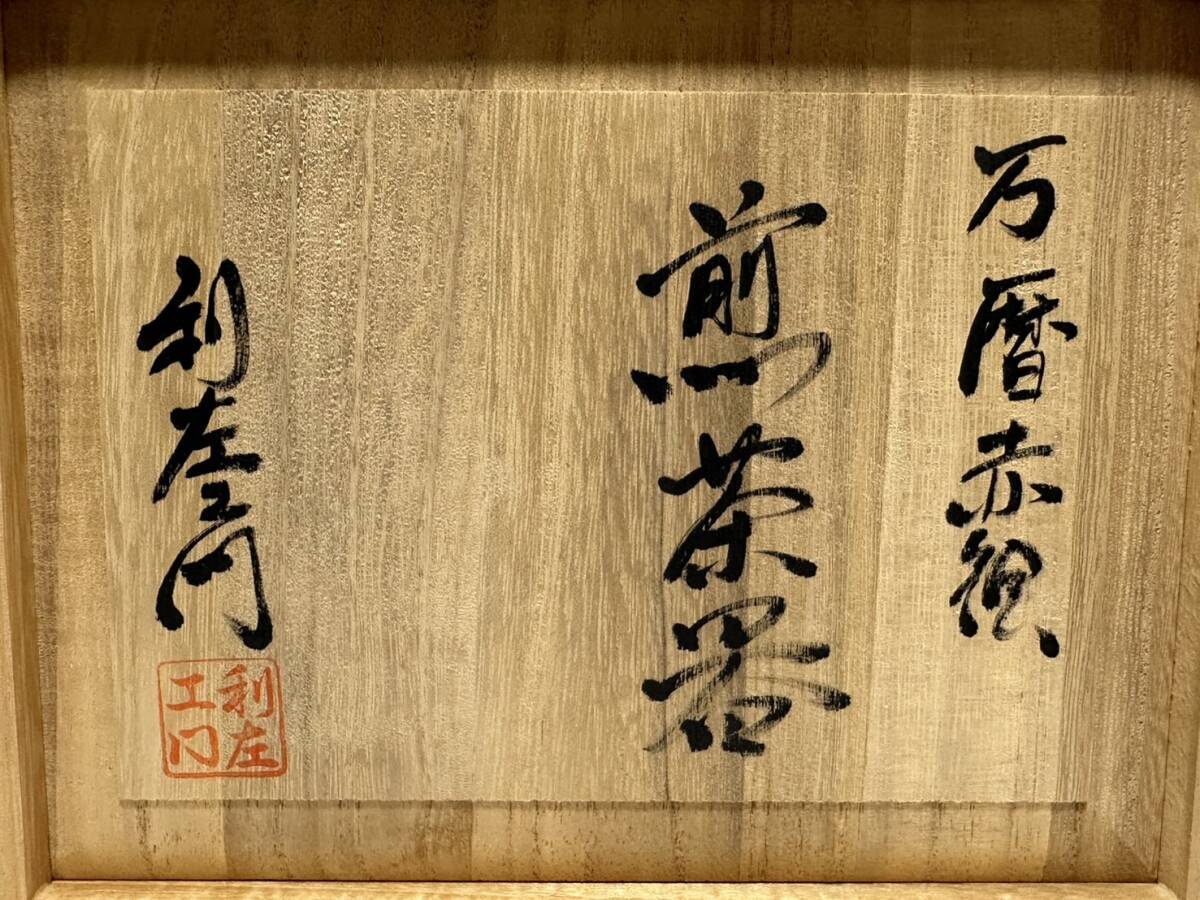 万暦赤繪
煎茶器
利左エ門
利左
エ門